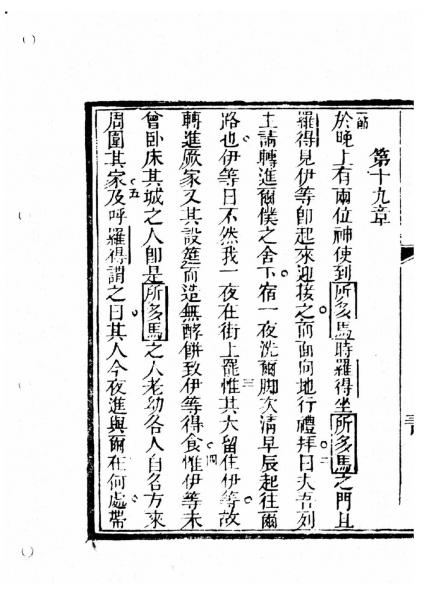 第十九章
一節
於晚上有兩位神使到所多馬時羅得坐所多馬之門且
羅得見伊等卽起來迎接之而面向地行禮拜。二曰夫吾列
主請轉進爾僕之舍下。宿一夜洗爾脚次清早辰起往爾
路也。伊等曰不然我一夜在街上罷。三惟其大留住伊等。故
轉進厥家又其設筵而造無酵餅致伊等得食。四惟伊等未
曾卧床其城之人卽是所多馬之人老幼各人自各方來
周圍其家。五及呼羅得謂之曰其人今夜進與爾在何處。帶